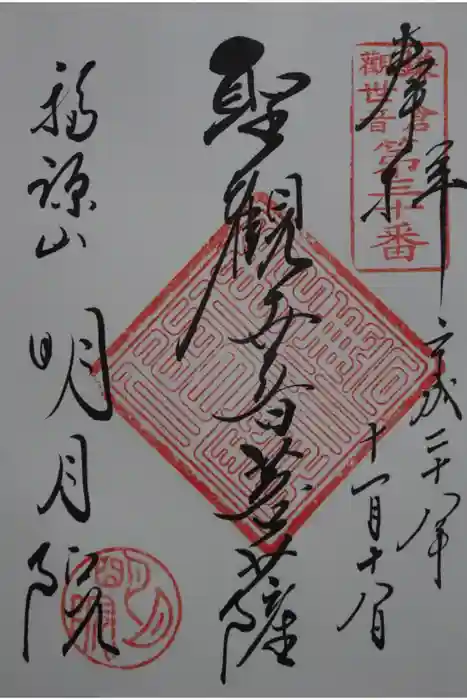 奉拝
鎌倉
觀世音
第三十番
平成二十八年
十一月十八日
聖觀世音菩薩
福源山 明月院